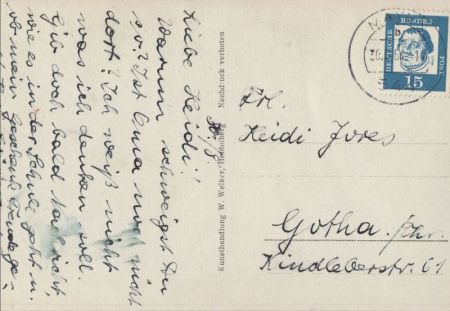 Liebe Heidi!
Warum schweigst Du
so? Ist Oma noch nicht
dort? Ich weiß nicht
was ich denken soll.
Gib doch bald Nachricht,
wie es in der Schule geht u.
ob mein Geschenk
Kunsthandlung W. Welker, Heidelberg Nachdruck verboten
DEUTSCHE BUNDESPOST
15
Frl.
Heidi Jores
Gotha /Thür.
Kindleberstr. 61